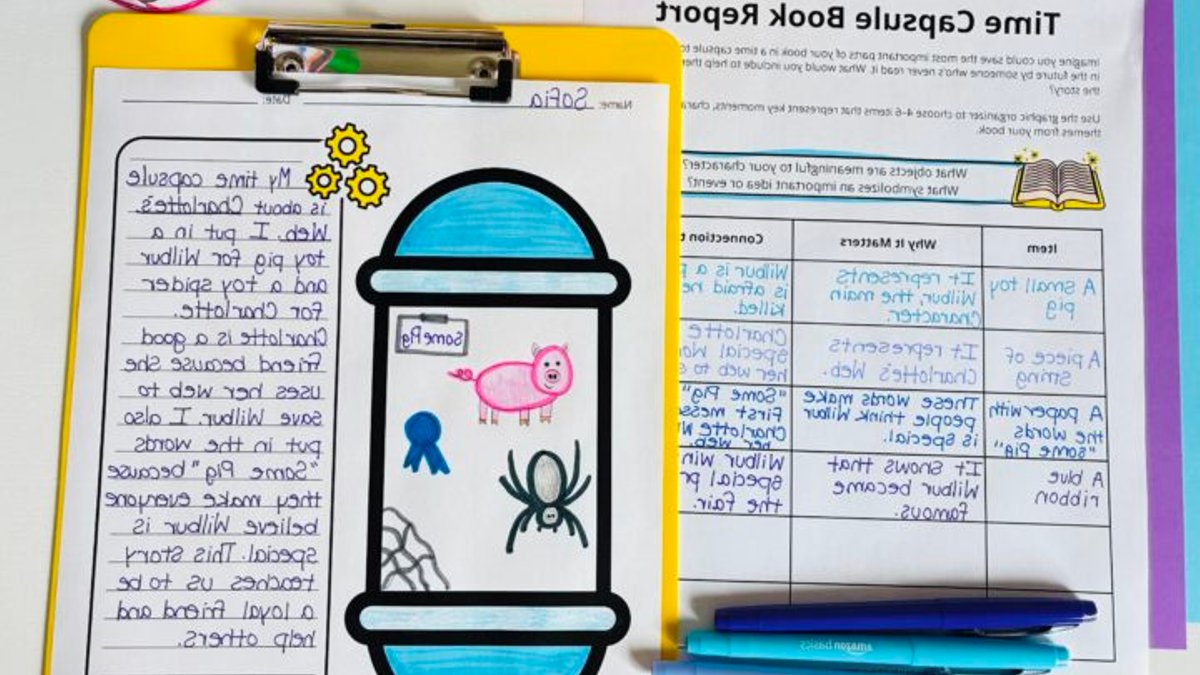 Time Capsule Book Report
Imagine you could save the most important parts of your book in a time capsule to
in the future by someone who's never read it. What would you include to help
the story?
Use the graphic organizer to choose 4-6 items that represent key moments,
themes from your book.
What objects are meaningful to your character?
What symbolizes an important idea or event?
Item
Why It Matters
Connection
A small toy
pig
It represents
Wilbur, the main
Character.
Wilbur is a
is afraid he
killed.
A piece of
string
It represents
Charlotte's Web.
Charlotte
special
her web to
A paper with
the words
"some Pig"
These words make
people think Wilbur
is special.
"Some Pig"
first
Charlotte
her web.
A blue
ribbon
It shows that
Wilbur became
famous.
Wilbur win
special
the fair.
amazon basics
Name: Sofia Date:
My time capsule
is about Charlotte's
Web. I put in a
toy pig for Wilbur
and a toy spider
for Charlotte.
Charlotte is a good
friend because she
uses her web to
save Wilbur. I also
put in the words
"Some Pig" because
they make everyone
believe Wilbur is
special. This Story
teaches us to be
a loyal friend and
help others.
Some Pig